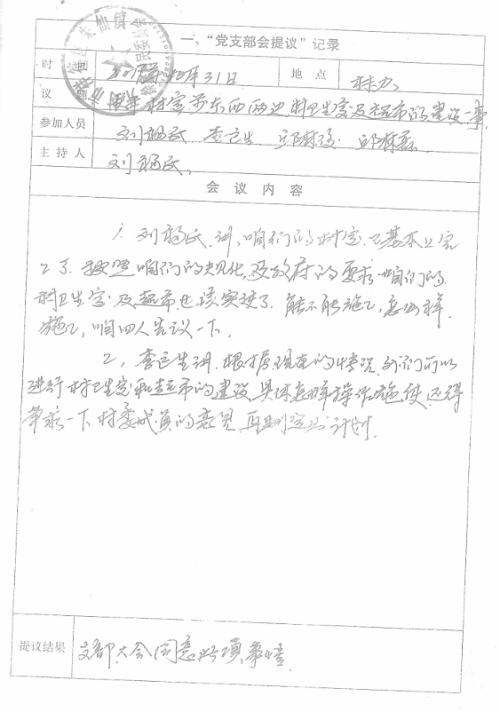 一、“党支部会提议”记录
时 年10月31日 地点 村办
议 村室前东西两边,村卫生室及超市的建设一事
参加人员 刘福民 李运生 邱
主持人 刘福民
会议内容
1. 刘福民讲,咱们的村室已基本上完
工了,按照咱们的规化,及政府的要求咱们的
村卫生室及超市也该实建了。能不能施工,怎么样
施工,咱四人先议一下。
2,李运生讲,根据现在的情况,我们可以
进行村卫生室和超市的建设,具体怎样操作施使,还得
争求一下村委成员的意见,再制定出计划。
提议结果 支部大会同意此项事情